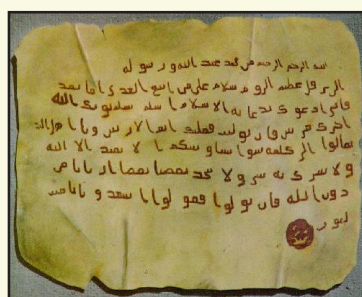 الرحمن الرحيم من محمد عبد الله ورسوله
الى هرقل عظيم الروم سلام على من اتبع الهدى اما بعد
فانى ادعوك بدعاية الاسلام اسلم تسلم يوتك الله
اجرك مرتين فان توليت فعليك اثم الاريسيين ويا اهل
تعالوا الى كلمة سوا بيننا وبينكم ا لا نعبد الا الله
ولا نشرك به ولا يتخذ بعضنا بعضا اربابا من
دون الله فان تولوا فقولوا اشهدوا بانا مسـ
لمون